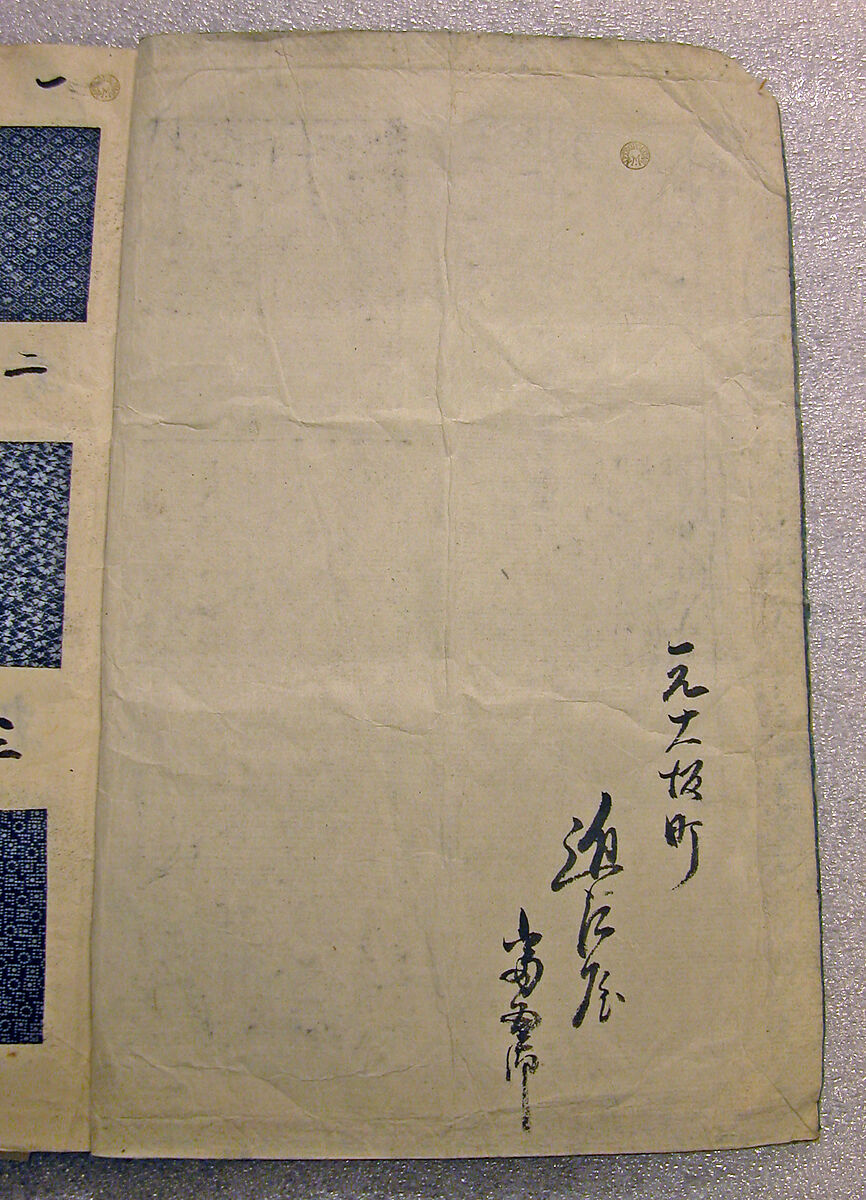 元大坂町
近江屋
一
二
三